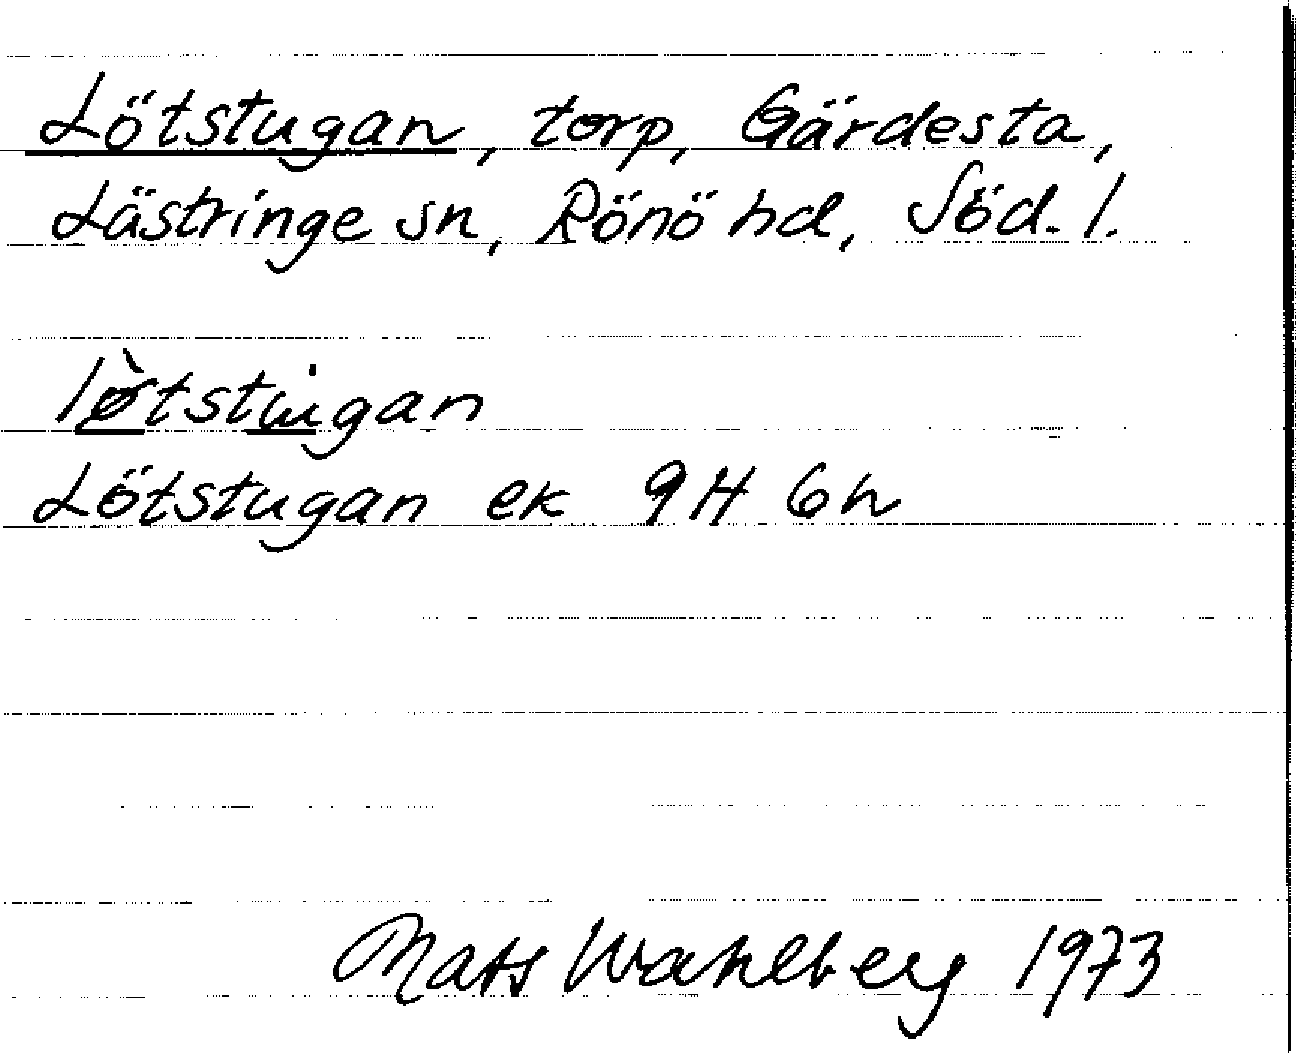 Lötstugan, torp, Gärdesta,
Lästringe sn, Rönö hd, Söd. l.
lø̀tstugan
Lötstugan ek 9H 6h
Mats Wahlberg 1973